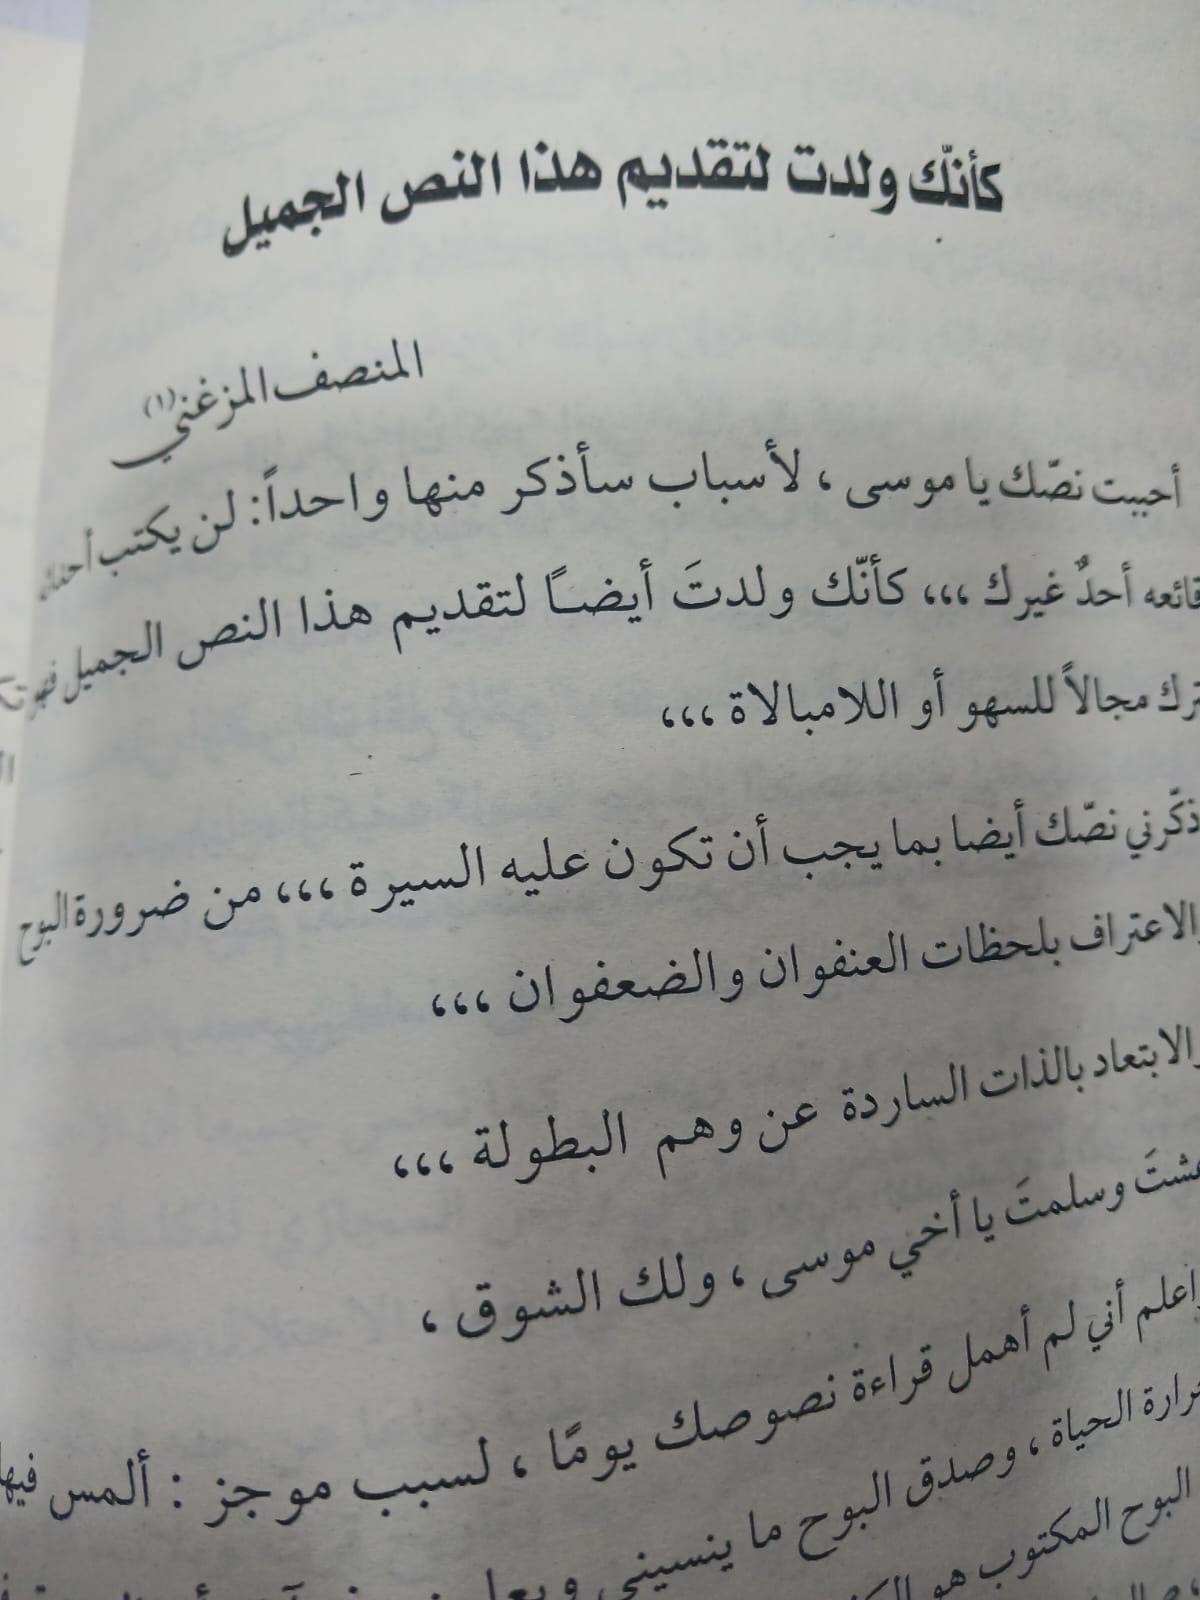 كأنّك ولدت لتقديم هذا النص الجميل
المنصف المزغني(١)
أحببت نصّك يا موسى ، لأسباب سأذكر منها واحداً: لن يكتب
أحدٌ غيرك ،،، كأنّك ولدتَ أيضًا لتقديم هذا النص الجميل
مجالاً للسهو أو اللامبالاة ،،،
ذكّرني نصّك أيضا بما يجب أن تكون عليه السيرة ،،، من ضرورة البوح
والاعتراف بلحظات العنفوان والضعفوان ،،،
والابتعاد بالذات الساردة عن وهم البطولة ،،،
عشتَ وسلمتَ يا أخي موسى ، ولك الشوق ،
واعلم أني لم أهمل قراءة نصوصك يومًا ، لسبب موجز : ألمس فيها
حرارة الحياة ، وصدق البوح ما ينسيني
البوح المكتوب هو